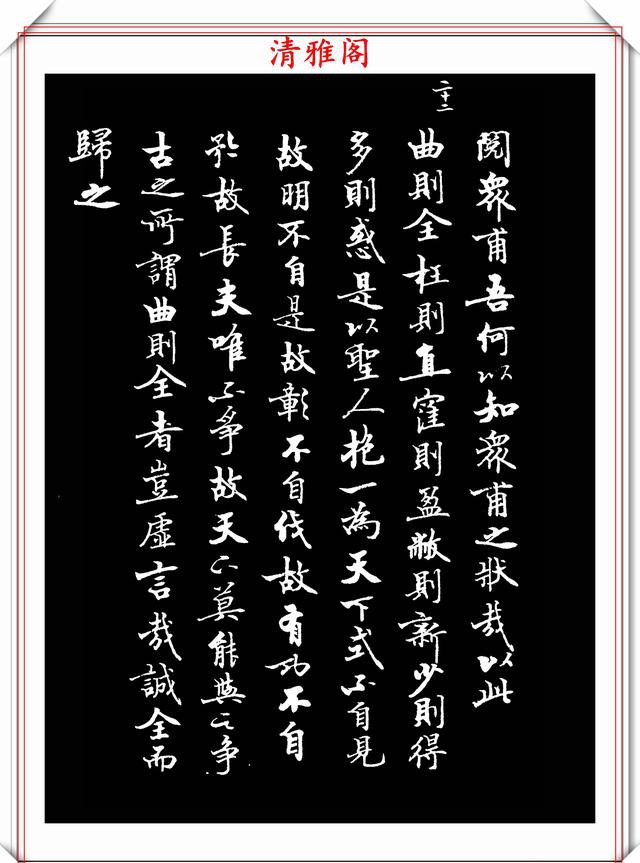 清雅阁
二十二
閲衆甫吾何以知衆甫之狀哉以此
曲則全枉則直窪則盈敝則新少則得
多則惑是以聖人抱一為天下式不自見
故明不自是故彰不自伐故有功不自
矜故長夫唯不爭故天下莫能與之爭
古之所謂曲則全者豈虛言哉誠全而
歸之